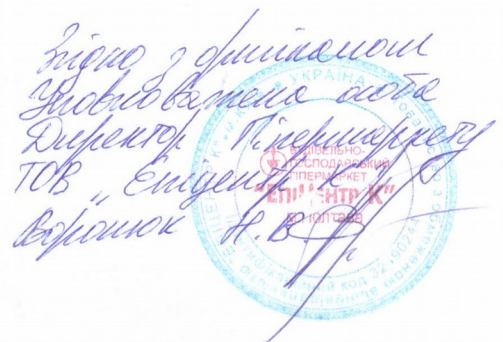 Згідно з оригіналом
Уповноважена особа
Директор Гіпермаркету
ТОВ „Епіцентр К"
Н.В.
УКРАЇНА
БУДІВЕЛЬНО-
ГОСПОДАРСЬКИЙ
ГІПЕРМАРКЕТ
"ЕПІЦЕНТР К"
м.Полтава